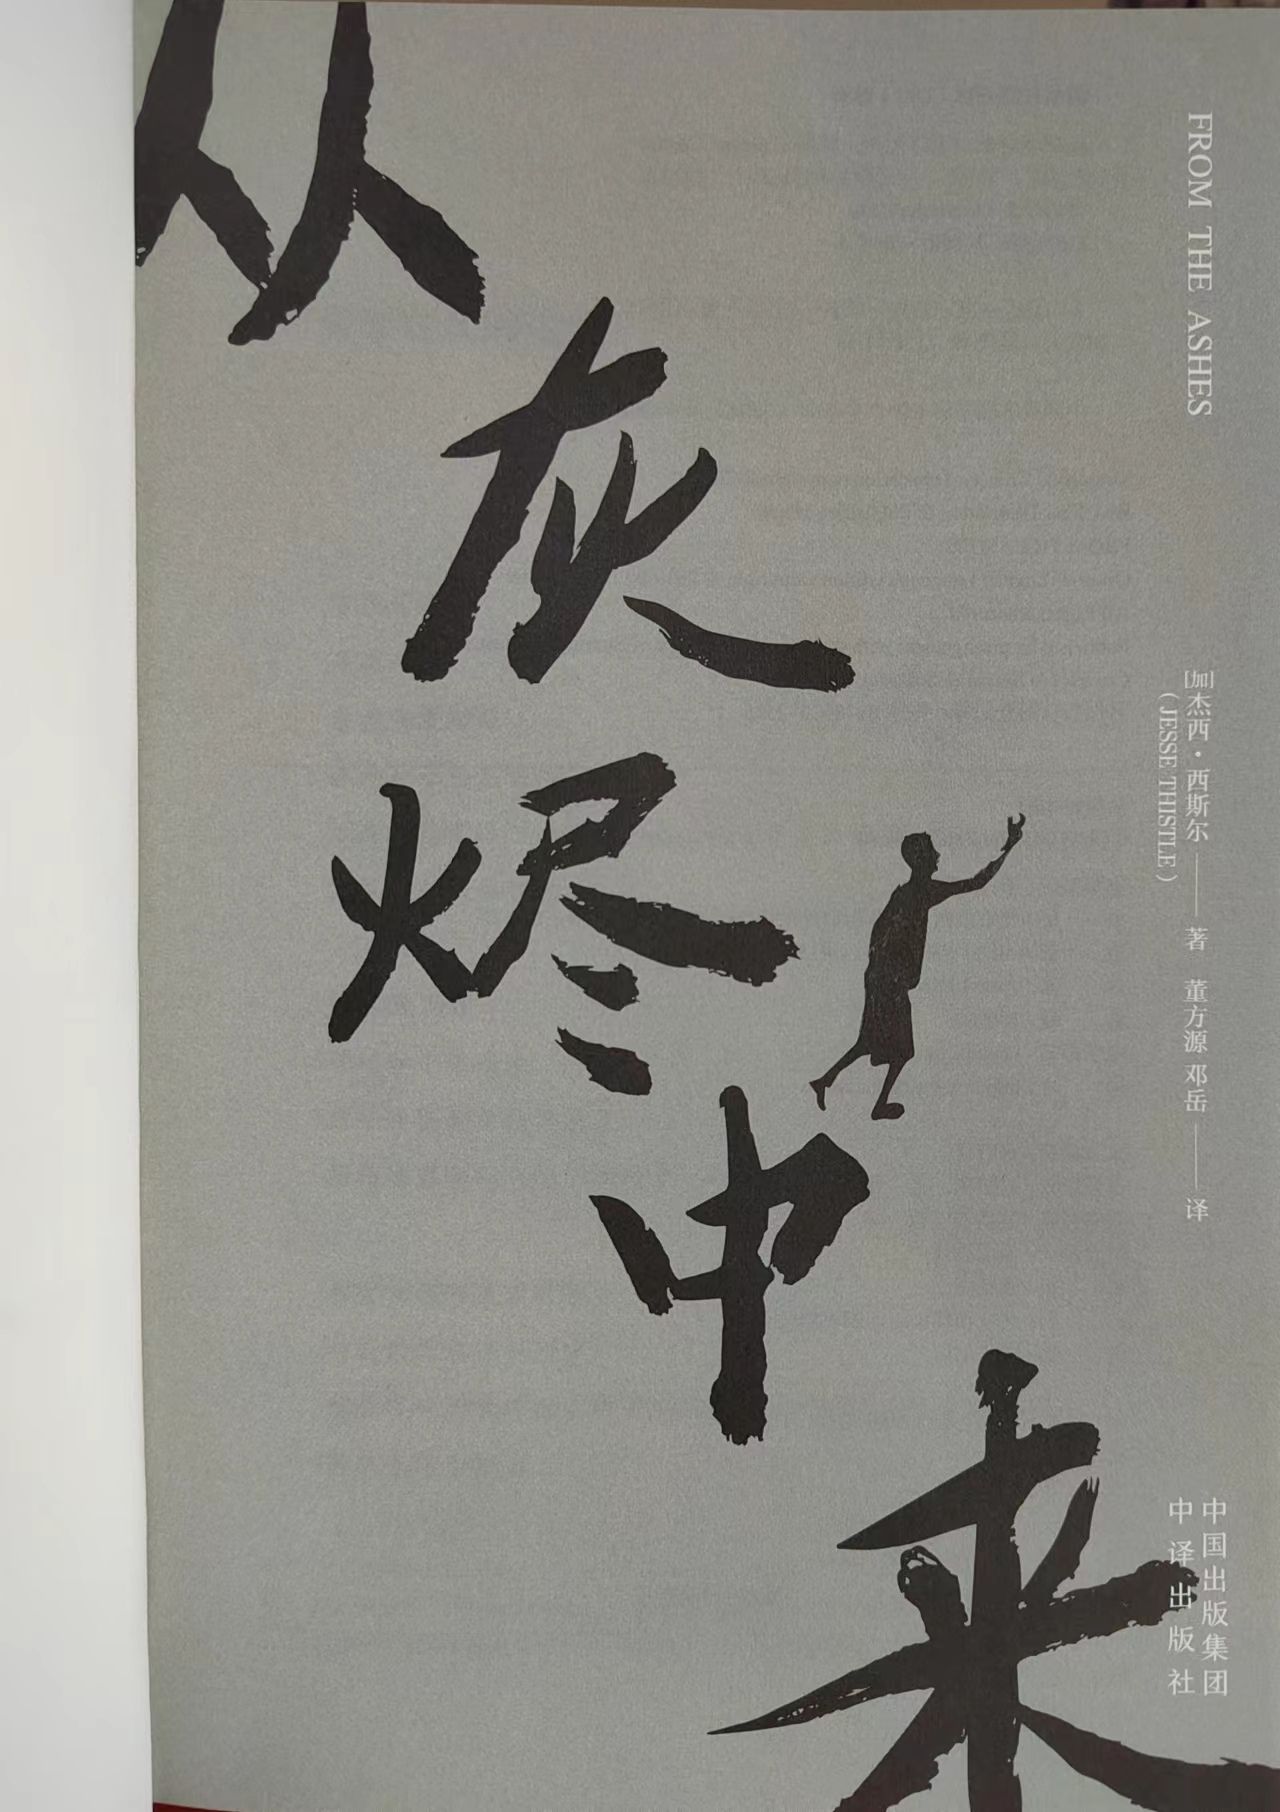 从灰烬中来
FROM THE ASHES
[加]杰西·西斯尔——著 董方源 邓岳——译
(JESSE THISTLE)
中国出版集团
中译出版社